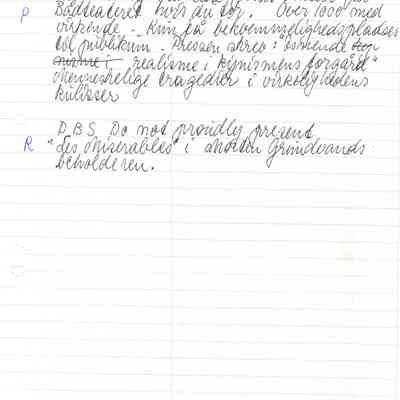 P Bådteateret hvis du tør. Over 1000 med
virkende. Kun få bekvemmelighedspladser
til publikum. Pressen skrev: "Osende
realisme i kynismens forgård"
Menneskelige tragedier i virkelighedens
kulisser
D.B.S. Do not proudly present
R "Les Miserables" i Morten Grindvands
beholderen.